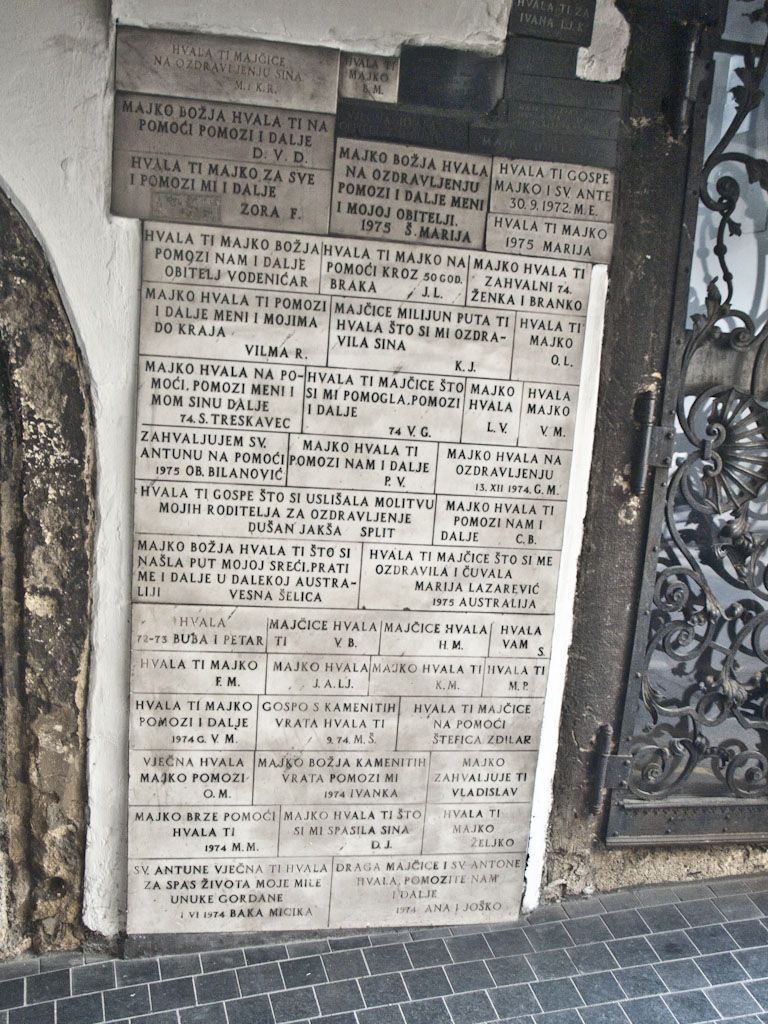 HVALA TI ZA
IVANA LJ.K
HVALA TI MAJČICE
NA OZDRAVLJENJU SINA
M. I K.R.
HVALA TI
MAJKO
B.M.
MAJKO BOŽJA HVALA TI NA
POMOĆI POMOZI I DALJE
D. V. D.
HVALA TI MAJKO ZA SVE
I POMOZI MI I DALJE
ZORA F.
MAJKO BOŽJA HVALA
NA OZDRAVLJENJU
POMOZI I DALJE MENI
I MOJOJ OBITELJI.
1975 Š. MARIJA
HVALA TI GOSPE
MAJKO I SV. ANTE
30.9.1972. M.E.
HVALA TI MAJKO
1975 MARIJA
HVALA TI MAJKO BOŽJA
POMOZI NAM I DALJE
OBITELJ VODENIČAR
HVALA TI MAJKO NA
POMOĆI KROZ 50 GOD.
BRAKA J.L.
MAJKO HVALA TI
ZAHVALNI 74.
ŽENKA I BRANKO
MAJKO HVALA TI POMOZI
I DALJE MENI I MOJIMA
DO KRAJA
VILMA R.
MAJČICE MILIJUN PUTA TI
HVALA ŠTO SI MI OZDRA-
VILA SINA
K.J.
HVALA TI
MAJKO
O.L.
MAJKO HVALA NA PO-
MOĆI, POMOZI MENI I
MOM SINU DALJE
74. S. TRESKAVEC
HVALA TI MAJČICE ŠTO
SI MI POMOGLA, POMOZI
I DALJE
74 V.G.
MAJKO
HVALA
L.V.
HVALA
MAJKO
V.M.
ZAHVALJUJEM SV.
ANTUNU NA POMOĆI
1975 OB. BILANOVIĆ
MAJKO HVALA TI
POMOZI NAM I DALJE
P.V.
MAJKO HVALA NA
OZDRAVLJENJU
13. XII 1974. G.M.
HVALA TI GOSPE ŠTO SI USLIŠALA MOLITVU
MOJIH RODITELJA ZA OZDRAVLJENJE
DUŠAN JAKŠA SPLIT
MAJKO HVALA TI
POMOZI NAM I
DALJE C.B.
MAJKO BOŽJA HVALA TI ŠTO SI
NAŠLA PUT MOJOJ SREĆI, PRATI
ME I DALJE U DALEKOJ AUSTRA-
LIJI VESNA ŠELICA
HVALA TI MAJČICE ŠTO SI ME
OZDRAVILA I ČUVALA
MARIJA LAZAREVIĆ
1975 AUSTRALIJA
HVALA
72-73 BUBA I PETAR
MAJČICE HVALA
TI V.B.
MAJČICE HVALA
H.M.
HVALA
VAM S.
HVALA TI MAJKO
F.M.
MAJKO HVALA
J.A.LJ.
MAJKO HVALA TI
K.M.
HVALA TI
M.P.
HVALA TI MAJKO
POMOZI I DALJE
1974 G. V. M.
GOSPO S KAMENITIH
VRATA HVALA TI
9. 74. M.Š.
HVALA TI MAJČICE
NA POMOĆI
ŠTEFICA ZDILAR
VJEČNA HVALA
MAJKO POMOZI
O.M.
MAJKO BOŽJA KAMENITIH
VRATA POMOZI MI
1974 IVANKA
MAJKO
ZAHVALJUJE TI
VLADISLAV
MAJKO BRZE POMOĆI
HVALA TI
1974 M.M.
MAJKO HVALA TI ŠTO
SI MI SPASILA SINA
D.J.
HVALA TI
MAJKO
ŽELJKO
SV. ANTUNE VJEČNA TI HVALA
ZA SPAS ŽIVOTA MOJE MILE
UNUKE GORDANE
1 VI 1974 BAKA MICIKA
DRAGA MAJČICE I SV. ANTONE
HVALA, POMOZITE NAM
I DALJE
1974 ANA I JOŠKO